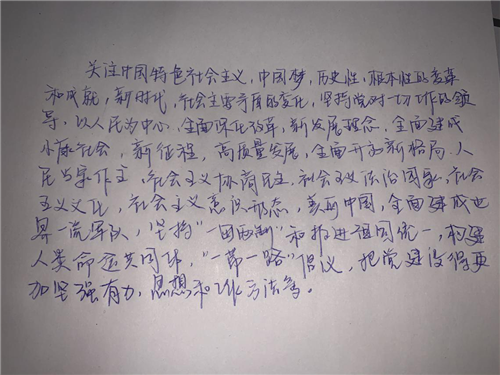 关注中国特色社会主义,中国梦,历史性,根本性的变革
和成就,新时代,社会主要矛盾的变化,坚持党对一切工作的领
导,以人民为中心,全面深化改革,新发展理念,全面建成
小康社会,新征程,高质量发展,全面开放新格局.人
民当家作主,社会主义协商民主.社会主义法治国家,社会
主义文化,社会主义意识形态,美丽中国,全面建成世
界一流军队,坚持“一国两制”和推进祖国统一,构建
人类命运共同体,“一带一路”倡议,把党建设得更
加坚强有力,思想和工作方法等。